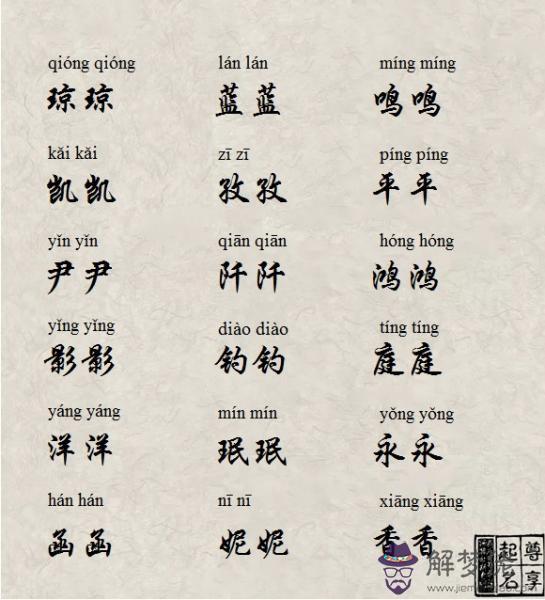 qióng qióng lán lán míng míng
琼琼 蓝蓝 鸣鸣
kǎi kǎi zī zī píng píng
凯凯 孜孜 平平
yǐn yǐn qiān qiān hóng hóng
尹尹 阡阡 鸿鸿
yǐng yǐng diào diào tíng tíng
影影 钓钓 庭庭
yáng yáng mín mín yǒng yǒng
洋洋 珉珉 永永
hán hán nī nī xiāng xiāng
函函 妮妮 香香
尊享
起名
解梦佬